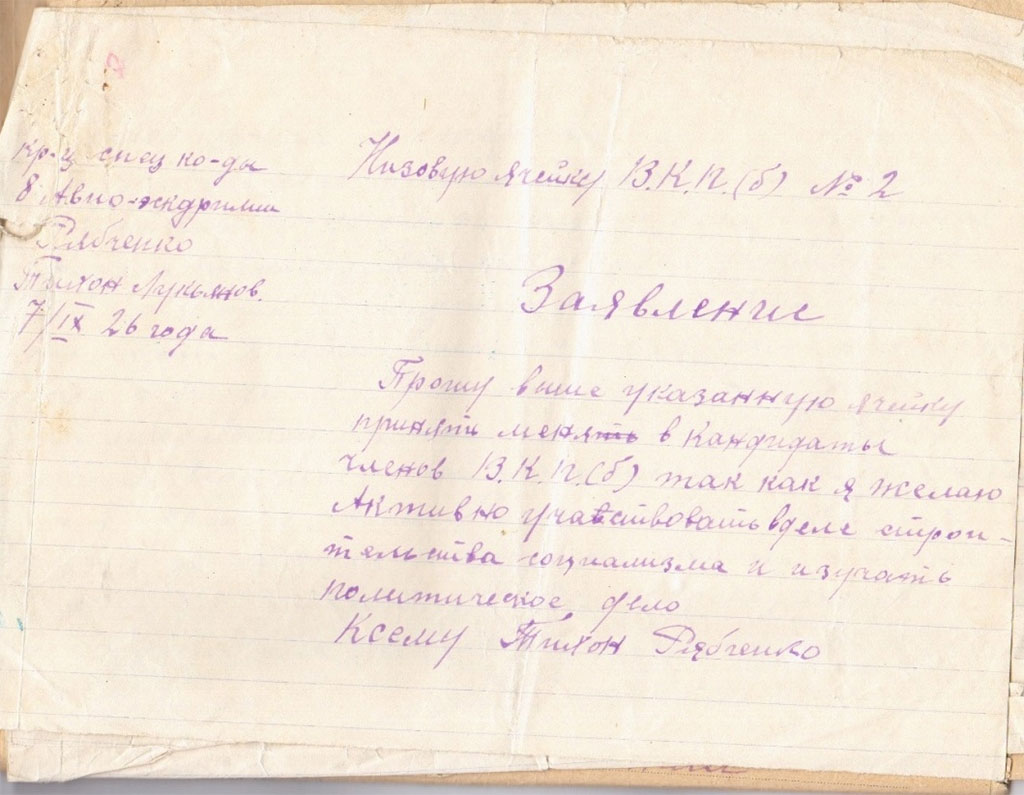 Кр-ц спец ко-ды
8 Авио-эскдрилии
Рябченко
Тихон Лукьянов.
7/IX 26 года
Низовую ячейку В.К.П.(б) № 2
Заявление
Прошу выше указанную ячейку
принять меня в кандидаты
членов В.К.П.(б) так как я желаю
Активно учавствовать в деле строи-
тельства социализма и изучать
политическое дело
Ксему Тихон Рябченко